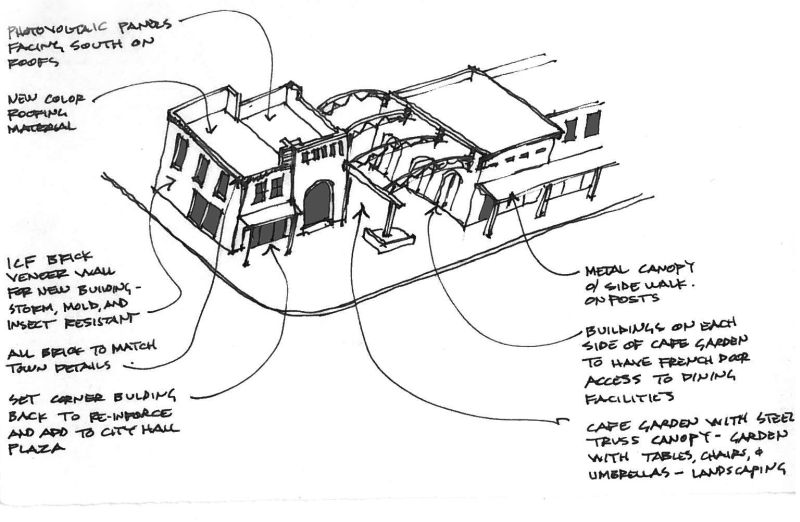 PHOTOVOLTAIC PANELS
FACING SOUTH ON
ROOFS
NEW COLOR
ROOFING
MATERIAL
ICF BRICK
VENEER WALL
FOR NEW BUILDING -
STORM, MOLD, AND
INSECT RESISTANT
ALL BRICK TO MATCH
TOWN DETAILS .
SET CORNER BULDING
BACK TO RE-INFORCE
AND ADD TO CITY HALL
PLAZA
METAL CANOPY
O/ SIDEWALK.
ON POSTS
BUILDINGS ON EACH
SIDE OF CAFE GARDEN
TO HAVE FRENCH DOOR
ACCESS TO DINING
FACILITIES
CAFE GARDEN WITH STEEL
TRUSS CANOPY - GARDEN
WITH TABLES, CHAIRS, &
UMBRELLAS - LANDSCAPING